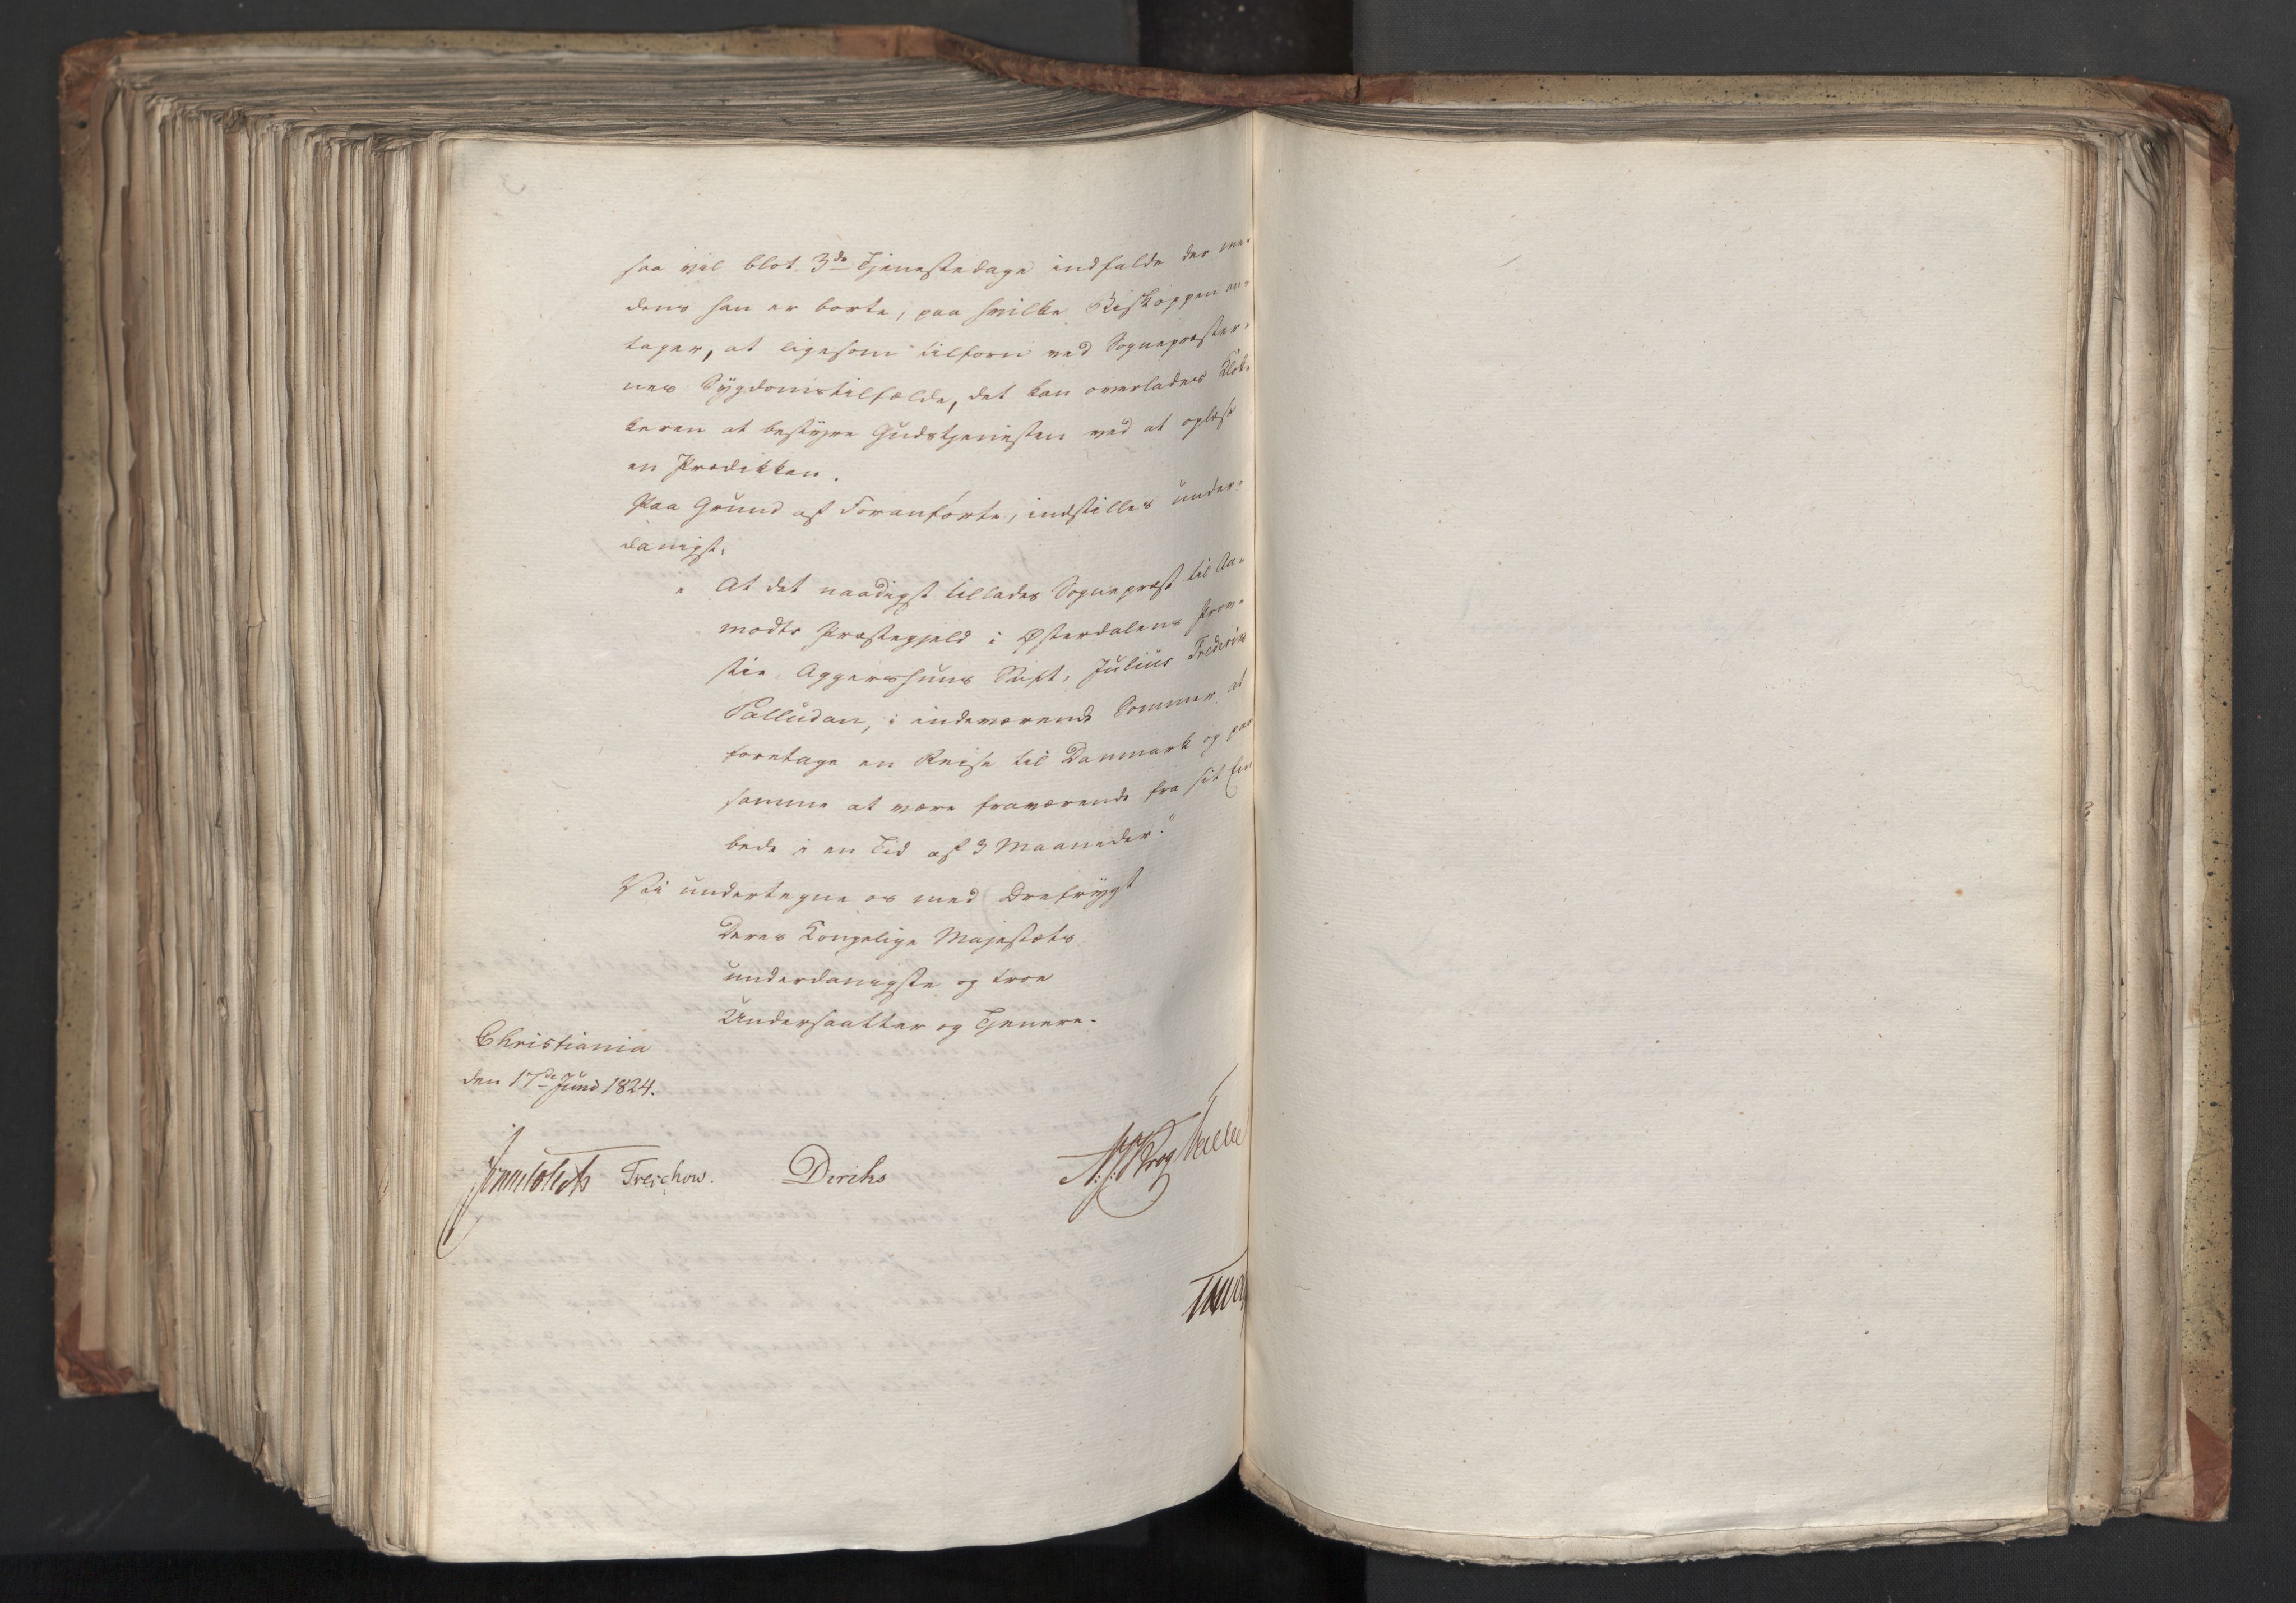 saa vil blot 3de Tjenestedage indfalde der me-
dens han er borte, paa hvilke Biskoppen an-
tager, at ligesom tilforn ved Sognepræster-
nes Sygdomstilfælde, det kan overlades Klok-
keren at bestyre Gudstjenesten ved at oplæse
en Prædikken.
Paa Grund af Foranførte, indstilles under-
danigst:
" At det naadigst tillades Sognepræst til Aa-
modts Præstegjeld i Østerdalens Prov-
stie, Aggershuus Stift, Julius Frederik
Palludan, i indeværende Sommer at
foretage en Reise til Danmark og paa
samme at være fraværende fra sit Em
bede i en Tid af 3 Maaneder."
Vi undertegne os med Ærefrygt
Deres Kongelige Majestæts
underdanigste og troe
Undersaatter og Tjenere.
Christiania
den 17de Juni 1824.
Treschow. Diriks